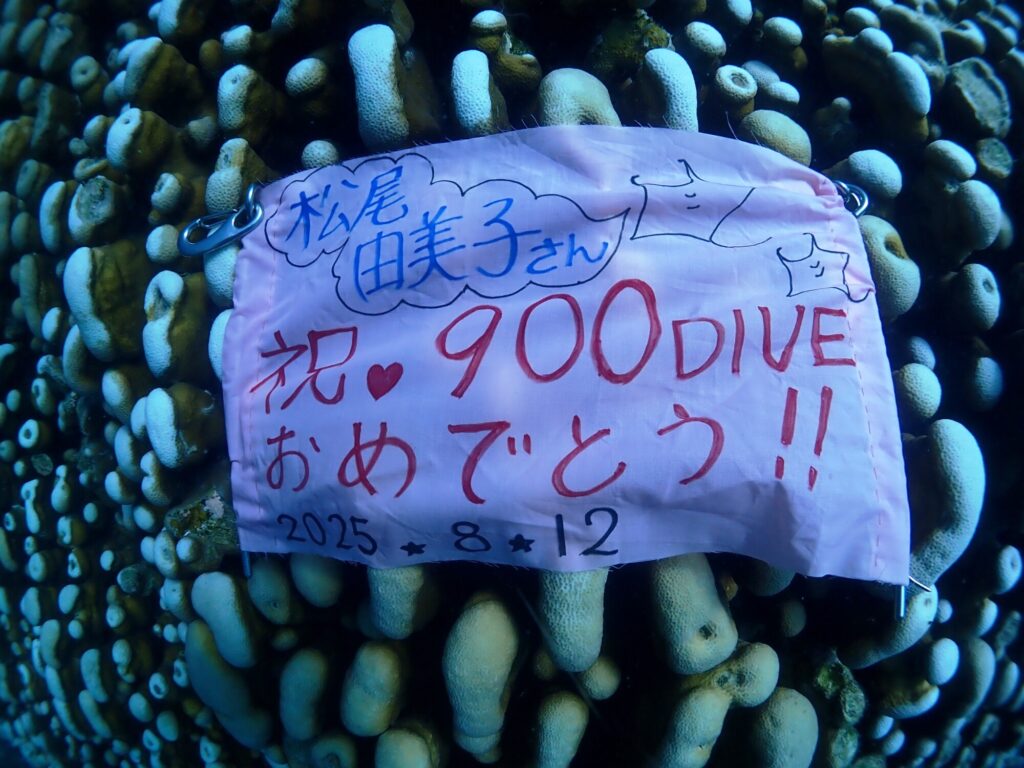 松尾
由美子さん
祝♥900DIVE
おめでとう!!
2025★8★12